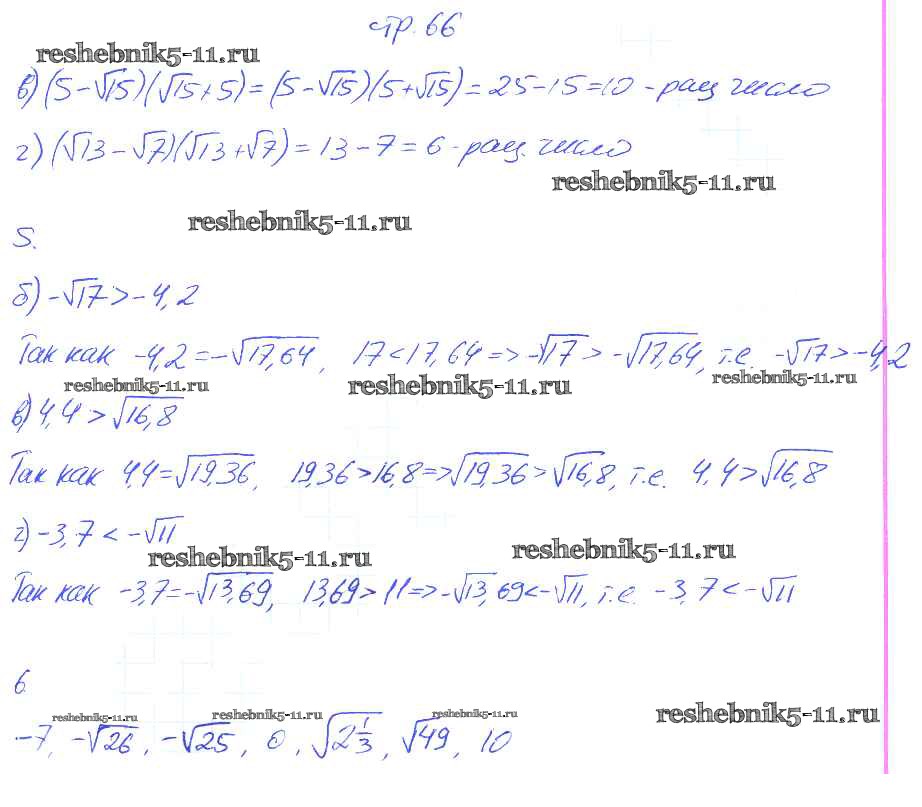 стр. 66
reshebnik5-11.ru
в) (5-√15)(√15+5)=(5-√15)(5+√15)=25-15=10 - рац число
г) (√13-√7)(√13+√7)=13-7=6 - рац. число
reshebnik5-11.ru
reshebnik5-11.ru
5.
б) -√17>-4,2
Так как -4,2=-√17,64, 17<17,64=>-√17>-√17,64, т.е. -√17>-4,2
reshebnik5-11.ru reshebnik5-11.ru reshebnik5-11.ru
в) 4,4>√16,8
Так как 4,4=√19,36, 19,36>16,8=>√19,36>√16,8, т.е. 4,4>√16,8
г) -3,7<-√11
reshebnik5-11.ru reshebnik5-11.ru
Так как -3,7=-√13,69, 13,69>11=>-√13,69<-√11, т.е. -3,7<-√11
6
reshebnik5-11.ru reshebnik5-11.ru reshebnik5-11.ru reshebnik5-11.ru
-7, -√26, -√25, 0, √2 1/3, √49, 10